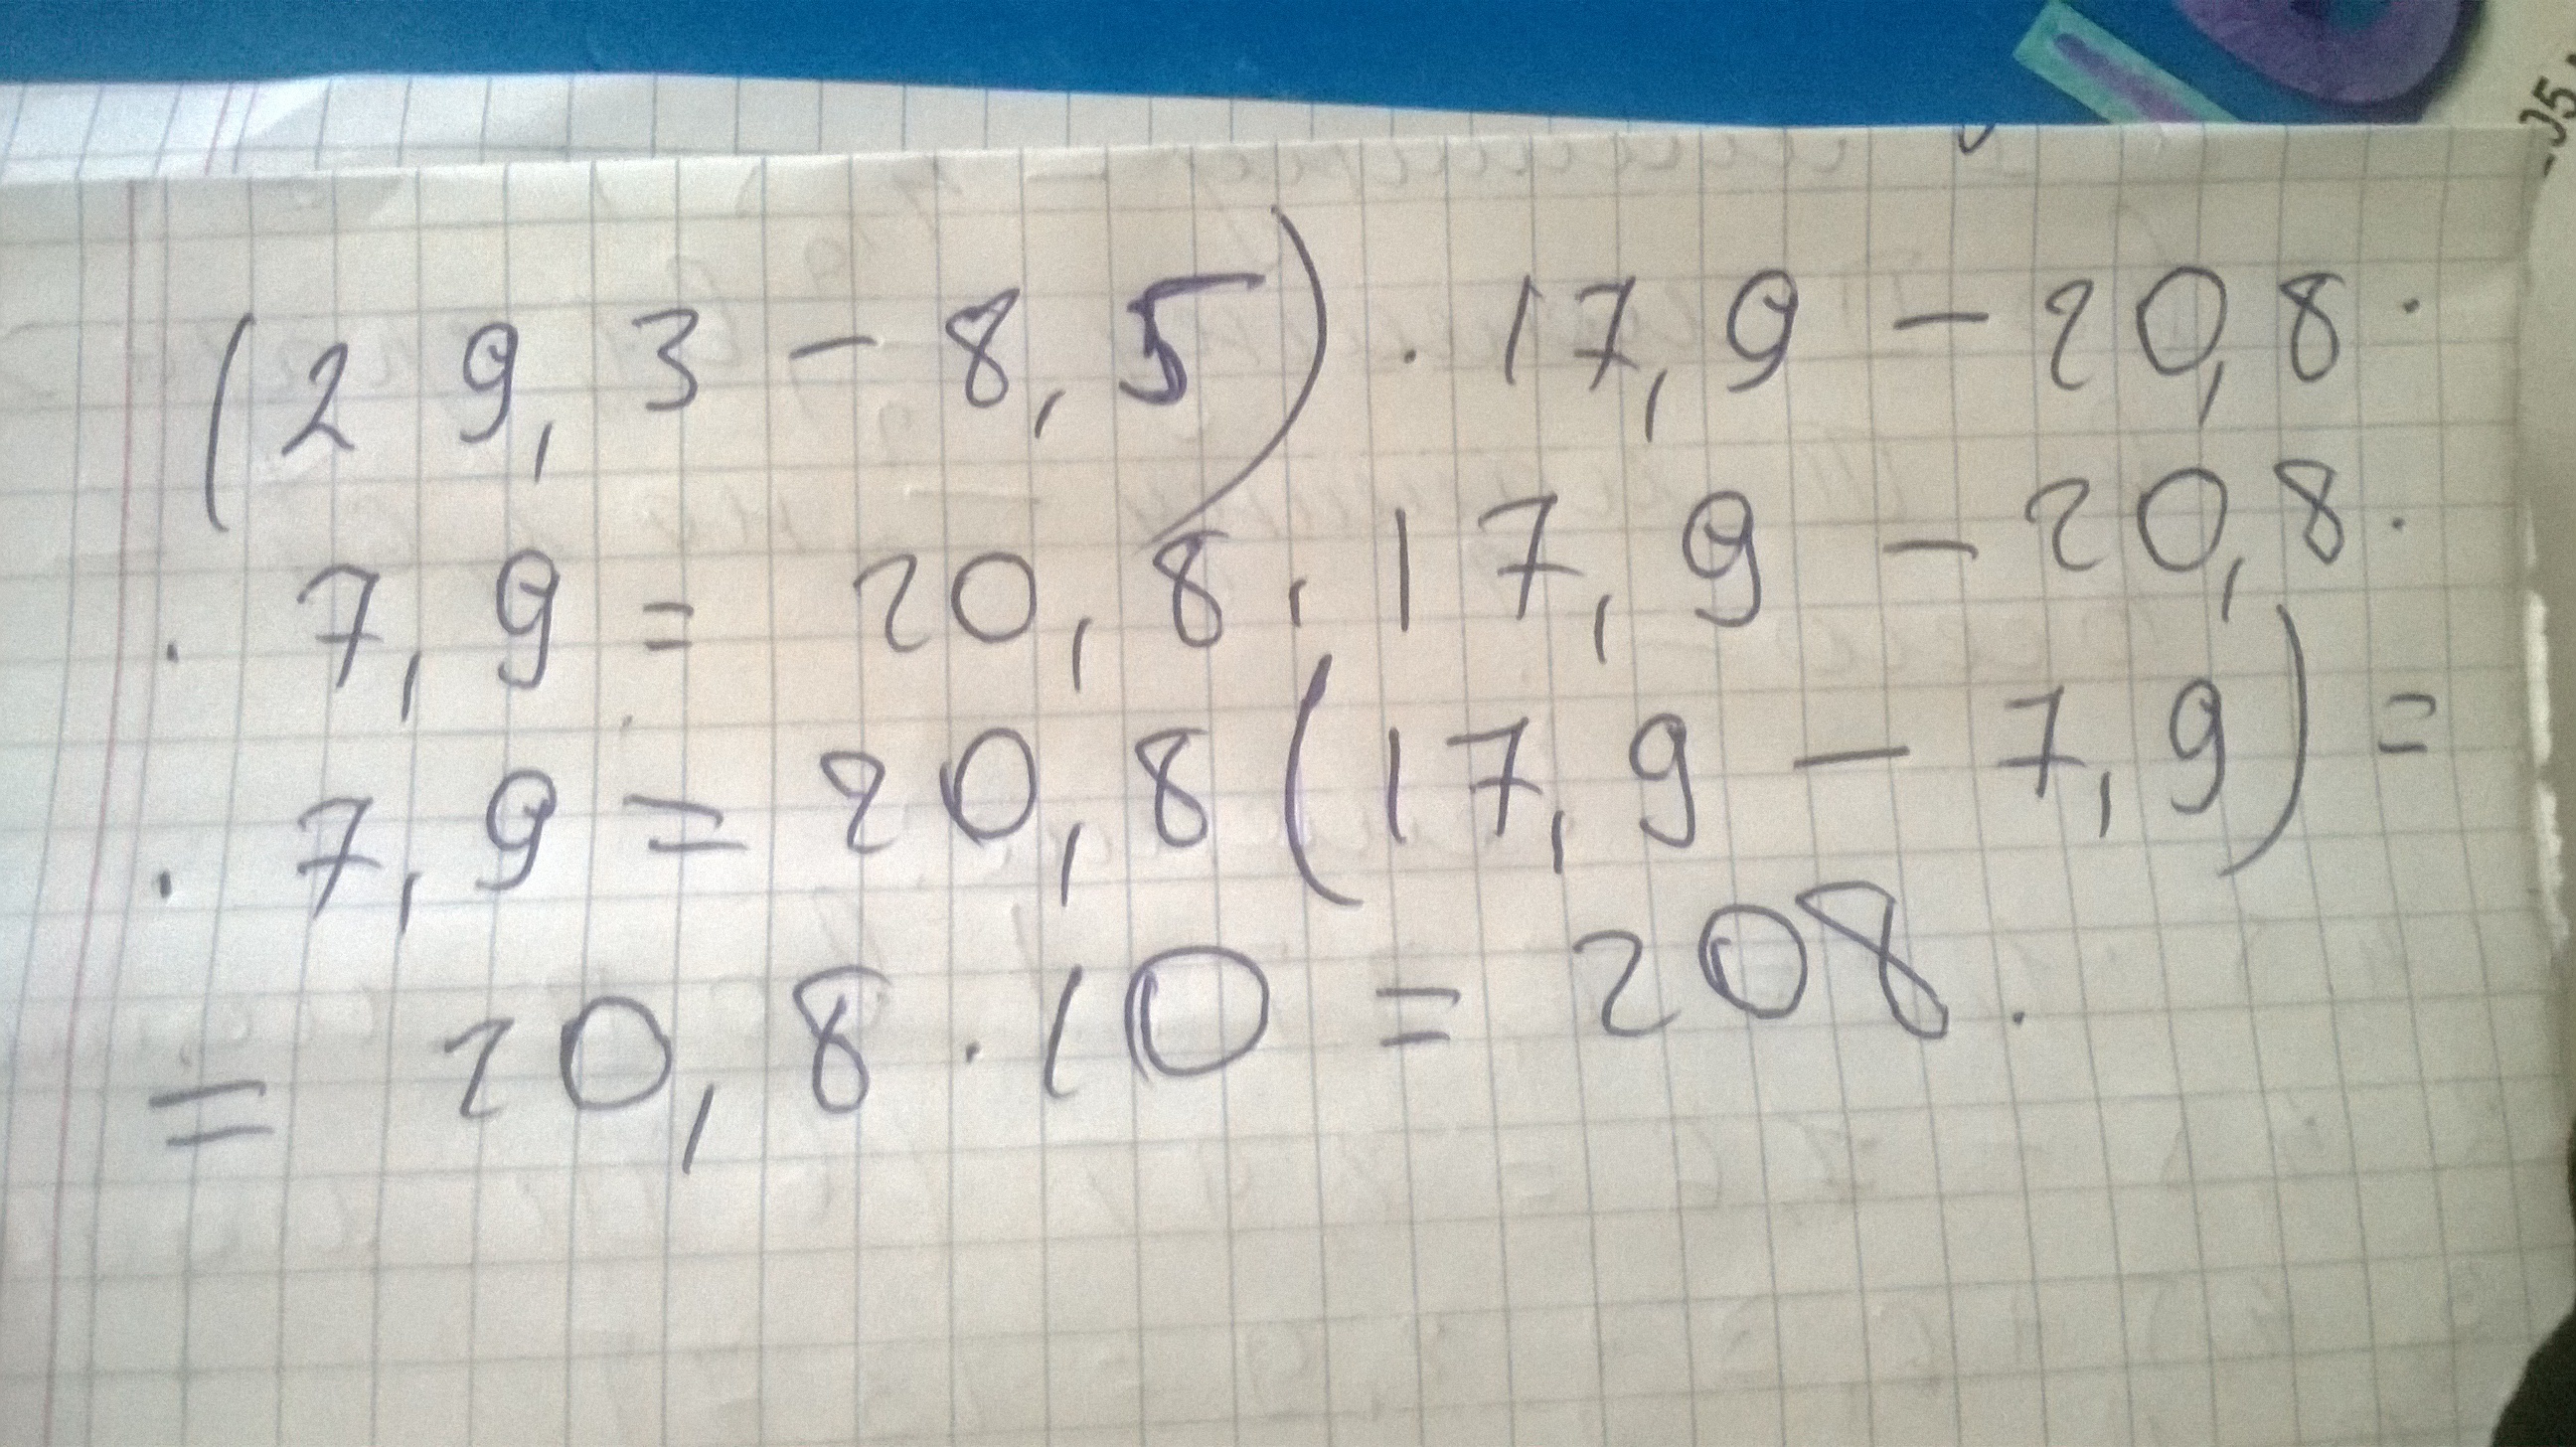 (29,3 - 8,5) · 17,9 - 20,8 ·
· 7,9 = 20,8 · 17,9 - 20,8 ·
· 7,9 = 20,8 (17,9 - 7,9) =
= 20,8 · 10 = 208.